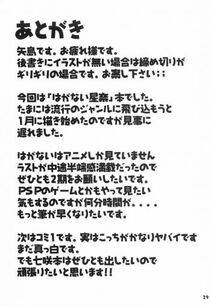 あとがき
矢島です。お疲れ様です。
後書きにイラストが無い場合は締め切りが
ギリギリの場合です。お察し下さい;;
今回は「はがない星奈」本でした。
たまには流行のジャンルに飛び込もうと
1月に描き始めたのですが見事に
遅れました。
はがないはアニメしか見ていません
ラストが中途半端感満載だったので
ぜひとも2期をお願いしたいです。
PSPのゲームとかもやって見たい
気もするのですが何分時間が、、、
もっと筆が早くなりたいです。
次はコミ1です。実はこっちがかなりヤバイです
まだ真っ白です。
でも七咲本はぜひとも出したいので
頑張りたいと思います!!
29